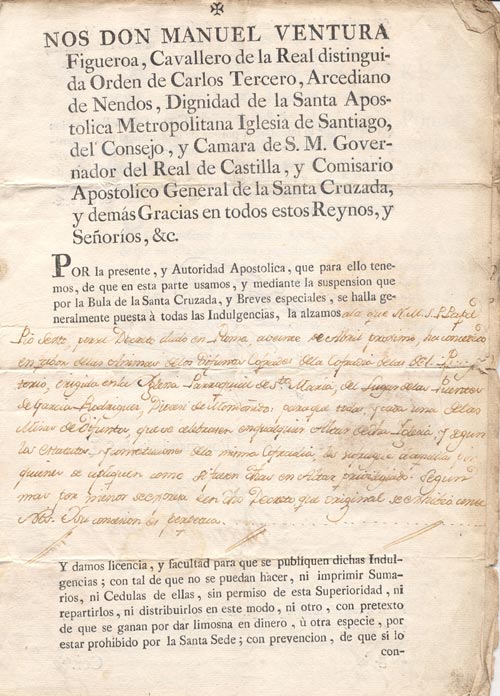 NOS DON MANUEL VENTURA
Figueroa, Cavallero de la Real distingui-
da Orden de Carlos Tercero, Arcediano
de Nendos, Dignidad de la Santa Apos-
tolica Metropolitana Iglesia de Santiago,
del Consejo, y Camara de S. M. Gover-
nador del Real de Castilla, y Comisario
Apostolico General de la Santa Cruzada,
y demás Gracias en todos estos Reynos, y
Señoríos, &c.
POR la presente, y Autoridad Apostolica, que para ello tene-
mos, de que en esta parte usamos, y mediante la suspension que
por la Bula de la Santa Cruzada, y Breves especiales, se halla ge-
neralmente puesta à todas las Indulgencias, la alzamos a la que N. M. S. P. Papa
Pio Sexto por su Decreto dado en Roma, a de Abril proximo, ha concedido
en favor de las Animas de los Difuntos Cofrades de la Cofradia de las del
torio, erigida en la Iglesia Parroquial de Sta. Maria, del Lugar de las Puentes
de Garcia Rodriguez, Diocesis de Mondoñedo: para que todas, y cada una de las
Misas de Difuntos que se celebrasen en qualquier Altar de dha Iglesia, y segun
los estatutos, y constituciones de la misma Cofradia, les
quienes se apliquen como si fuesen dhas en Altar privilegiado: Segun
mas por menor se expresa en dho Decreto que original se exhibió ante
Nos. Dha concesion es perpetua.
Y damos licencia, y facultad para que se publiquen dichas Indul-
gencias; con tal de que no se puedan hacer, ni imprimir Suma-
rios, ni Cedulas de ellas, sin permiso de esta Superioridad, ni
repartirlos, ni distribuirlos en este modo, ni otro, con pretexto
de que se ganan por dar limosna en dinero, ù otra especie, por
estar prohibido por la Santa Sede; con prevencion, de que si lo
con-